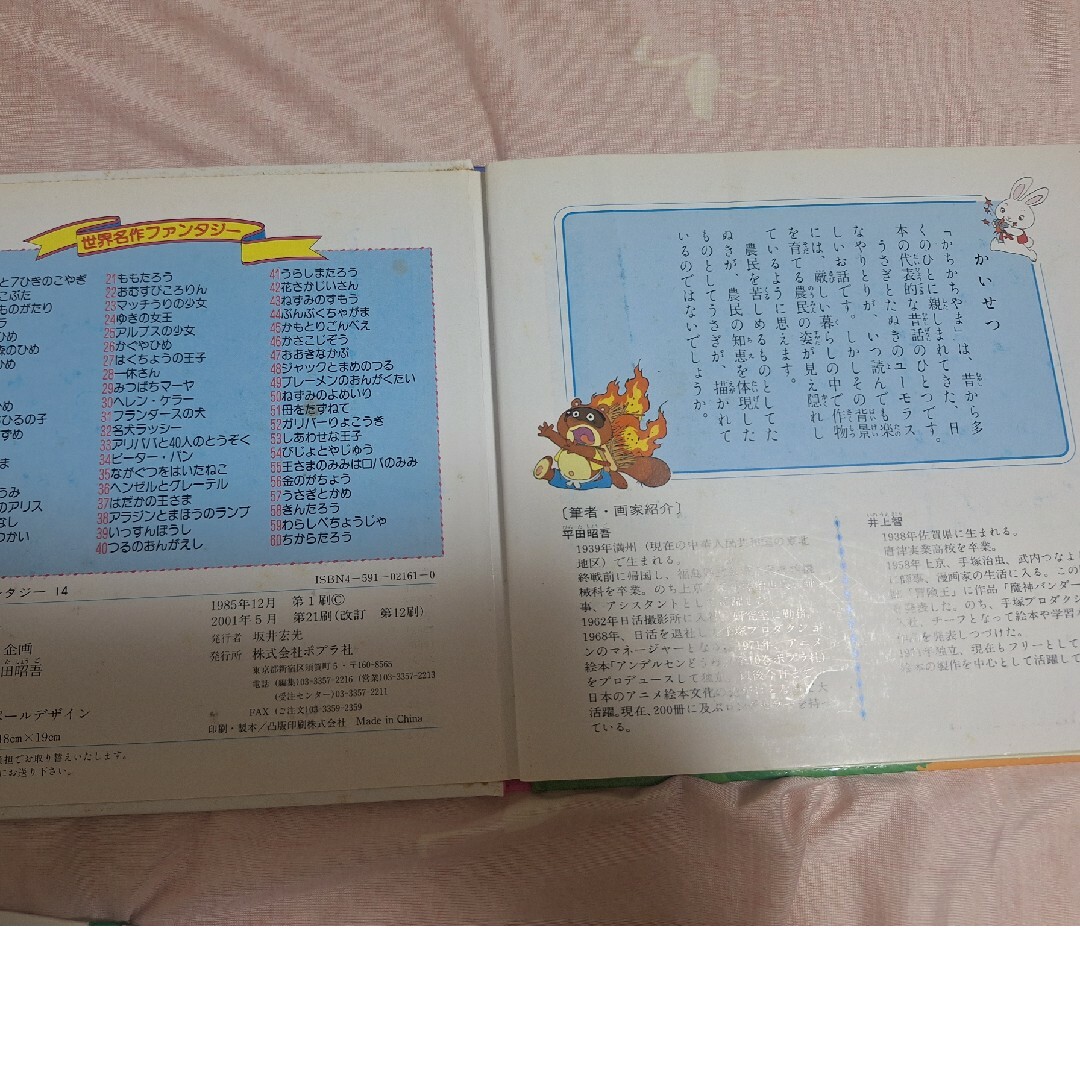 世界名作ファンタジー
と7ひきのこやぎ
こぶた
ものがたり
ひめ
ひめ
ひるの子
すずめ
のアリス
なし
21ももたろう
22おむすびころりん
23マッチうりの少女
24ゆきの女王
25アルプスの少女
26かぐやひめ
27はくちょうの王子
28一休さん
29みつばちマーヤ
30ヘレン・ケラー
31フランダースの犬
32名犬ラッシー
33アリババと40人のとうぞく
34ピーター・パン
35ながぐつをはいたねこ
36ヘンゼルとグレーテル
37はだかの王さま
38アラジンとまほうのランプ
39いっすんぼうし
40つるのおんがえし
41うらしまたろう
42花さかじいさん
43ねずみのすもう
44ぶんぶくちゃがま
45かもとりごんべえ
46かさこじぞう
47おおきなかぶ
48ジャックとまめのつる
49ブレーメンのおんがくたい
50ねずみのよめいり
51母をたずねて
52ガリバーりょこうき
53しあわせな王子
54びじょとやじゅう
55王さまのみみはロバのみみ
56金のがちょう
57うさぎとかめ
58きんたろう
59わらしべちょうじゃ
60ちからたろう
ISBN4-591-02161-0
タジー 14
1985年12月 第1刷©
2001年5月 第21刷(改訂 第12刷)
発行者 坂井宏先
発行所 株式会社ポプラ社
東京都新宿区須賀町5・〒160-8565
電話 (編集)03-3357-2216 (営業)03-3357-2213
(受注センター)03-3357-2211
FAX (ご注文)03-3359-2359
印刷・製本/凸版印刷株式会社 Made in China
企画
田昭吾
ールデザイン
18cm×19cm
担でお取り替えいたします。
にお送り下さい。
かいせつ
「かちかちやま」は、昔から多
くのひとに親しまれてきた、日
本の代表的な昔話のひとつです。
うさぎとたぬきのユーモラス
なやりとりが、いつ読んでも楽
しいお話です。しかしその背景
には、厳しい暮らしの中で作物
を育てる農民の姿が見え隠れし
ているように思えます。
農民を苦しめるものとしてた
ぬきが、農民の知恵を体現した
ものとしてうさぎが、描かれて
いるのではないでしょうか。
〔筆者・画家紹介〕
平田昭吾
1939年満州(現在の中華人民共和国の東北
地区)で生まれる。
終戦前に帰国し、
械科を卒業。のち上京
事、アシスタントとし
1962年日活撮影所に入社
1968年、日活を退社し、手塚プロダクション
ンのマネージャーとなる。1971年、アニメ
絵本「アンデルセンどうわ
をプロデュースして独立
日本のアニメ絵本文化の
活躍。現在、200冊に及ぶロングセラーを持っ
ている。
井上智
1938年佐賀県に生まれる。
唐津実業高校を卒業。
1958年上京、手塚治虫、武内つなよし
に師事、漫画家の生活に入る。この間
「冒険王」に作品「魔神バンダー
を発表した。のち、手塚プロダクション
入社、チーフとなって絵本や学習
を発表しつづけた。
独立、現在もフリーとして
絵本の製作を中心として活躍して